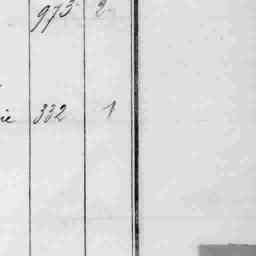 973 2
ie 332 1